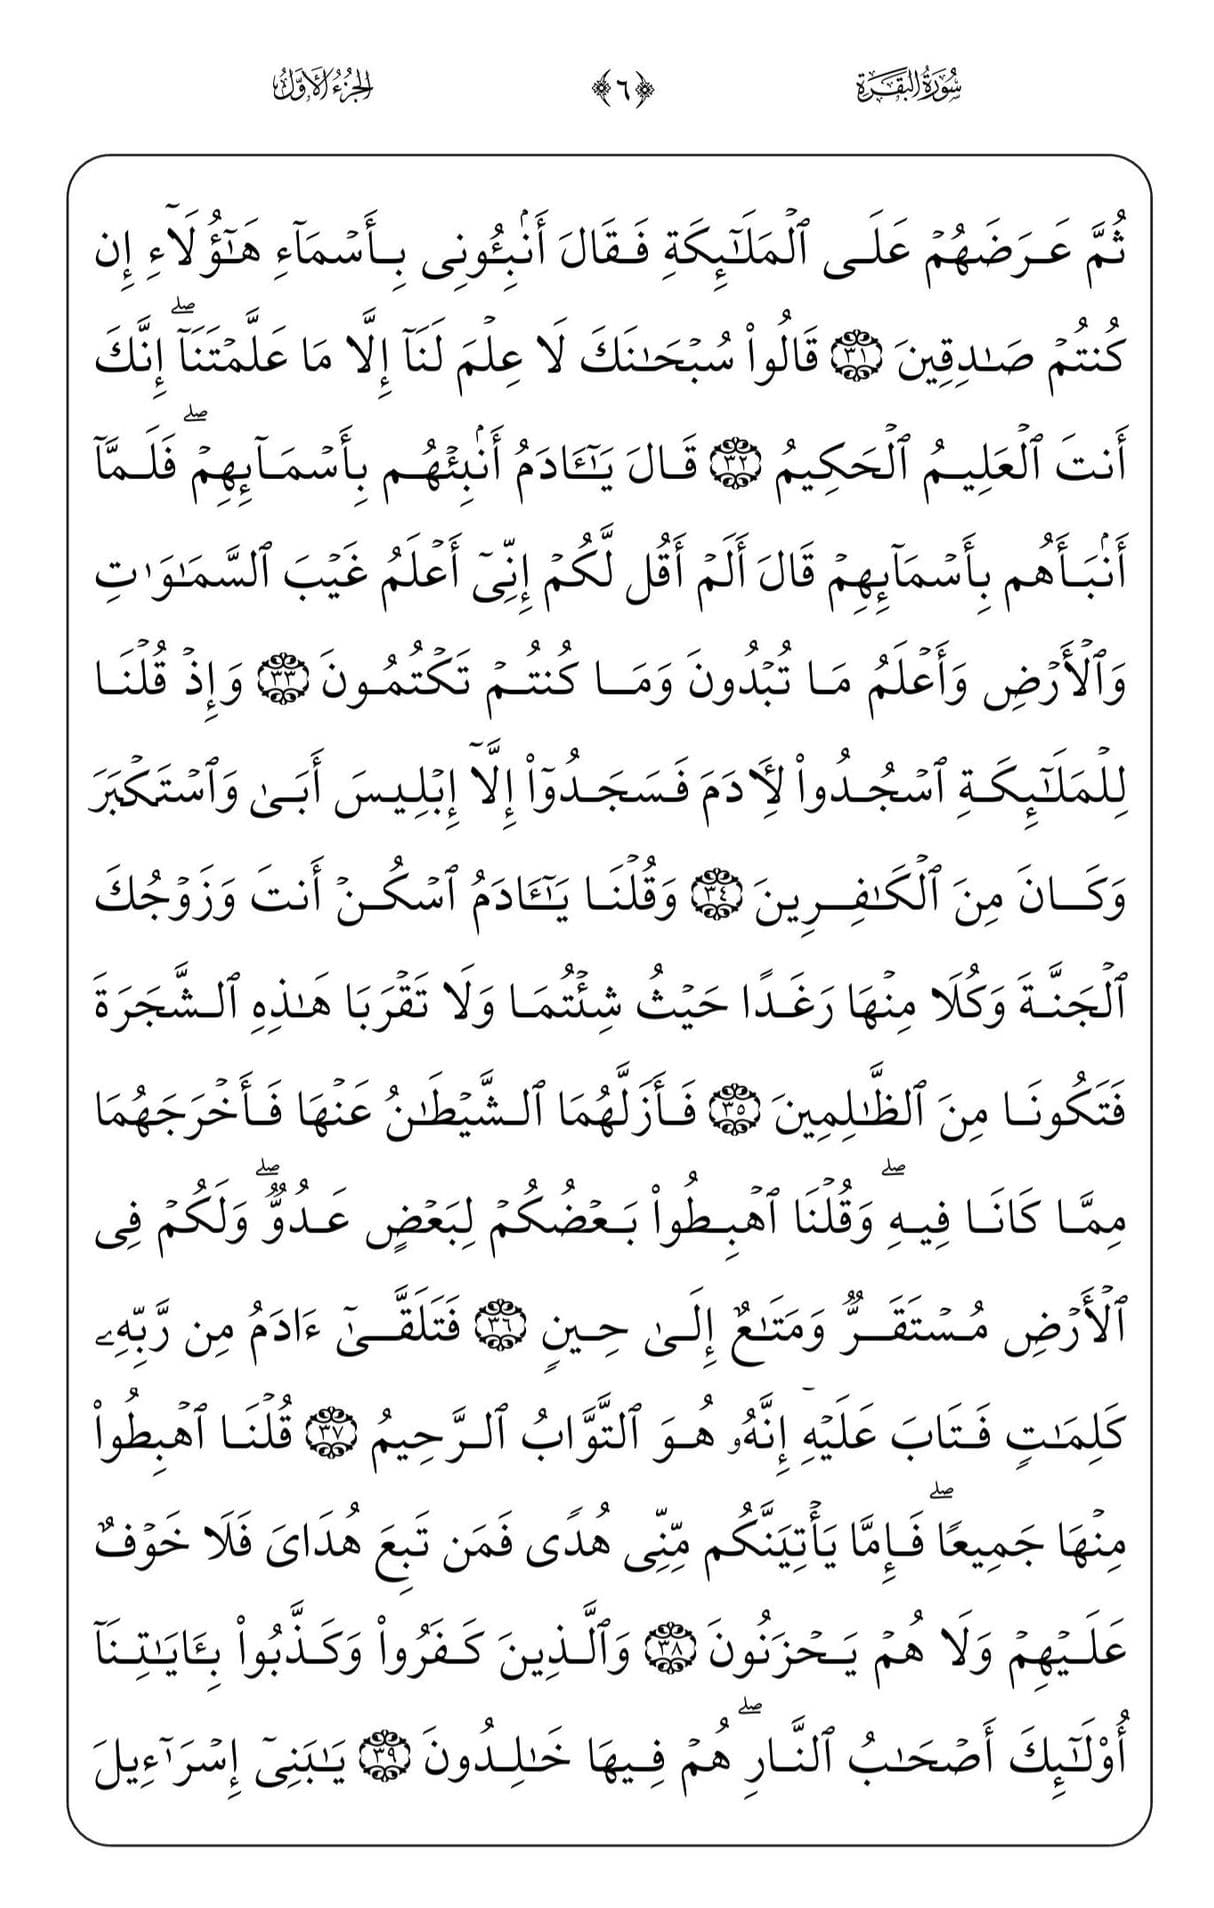 سُورَةُ البَقَرَةِ ﴿٦﴾ الجُزْءُ الأَوَّلُ
ثُمَّ عَرَضَهُمۡ عَلَى ٱلۡمَلَـٰٓئِكَةِ فَقَالَ أَنۢبِـُٔونِى بِأَسۡمَآءِ هَـٰٓؤُلَآءِ إِن
كُنتُمۡ صَـٰدِقِينَ ٣١ قَالُوا۟ سُبۡحَـٰنَكَ لَا عِلۡمَ لَنَآ إِلَّا مَا عَلَّمۡتَنَآۖ إِنَّكَ
أَنتَ ٱلۡعَلِيمُ ٱلۡحَكِيمُ ٣٢ قَالَ يَـٰٓـَٔادَمُ أَنۢبِئۡهُم بِأَسۡمَآئِهِمۡۖ فَلَمَّآ
أَنۢبَأَهُم بِأَسۡمَآئِهِمۡ قَالَ أَلَمۡ أَقُل لَّكُمۡ إِنِّىٓ أَعۡلَمُ غَيۡبَ ٱلسَّمَـٰوَٰتِ
وَٱلۡأَرۡضِ وَأَعۡلَمُ مَا تُبۡدُونَ وَمَا كُنتُمۡ تَكۡتُمُونَ ٣٣ وَإِذۡ قُلۡنَا
لِلۡمَلَـٰٓئِكَةِ ٱسۡجُدُوا۟ لِـَٔادَمَ فَسَجَدُوٓا۟ إِلَّآ إِبۡلِيسَ أَبَىٰ وَٱسۡتَكۡبَرَ
وَكَانَ مِنَ ٱلۡكَـٰفِرِينَ ٣٤ وَقُلۡنَا يَـٰٓـَٔادَمُ ٱسۡكُنۡ أَنتَ وَزَوۡجُكَ
ٱلۡجَنَّةَ وَكُلَا مِنۡهَا رَغَدًا حَيۡثُ شِئۡتُمَا وَلَا تَقۡرَبَا هَـٰذِهِ ٱلشَّجَرَةَ
فَتَكُونَا مِنَ ٱلظَّـٰلِمِينَ ٣٥ فَأَزَلَّهُمَا ٱلشَّيۡطَـٰنُ عَنۡهَا فَأَخۡرَجَهُمَا
مِمَّا كَانَا فِيهِۖ وَقُلۡنَا ٱهۡبِطُوا۟ بَعۡضُكُمۡ لِبَعۡضٍ عَدُوٌّۖ وَلَكُمۡ فِى
ٱلۡأَرۡضِ مُسۡتَقَرٌّ وَمَتَـٰعٌ إِلَىٰ حِينٍ ٣٦ فَتَلَقَّىٰٓ ءَادَمُ مِن رَّبِّهِۦ
كَلِمَـٰتٍ فَتَابَ عَلَيۡهِۚ إِنَّهُۥ هُوَ ٱلتَّوَّابُ ٱلرَّحِيمُ ٣٧ قُلۡنَا ٱهۡبِطُوا۟
مِنۡهَا جَمِيعًاۖ فَإِمَّا يَأۡتِيَنَّكُم مِّنِّى هُدًى فَمَن تَبِعَ هُدَاىَ فَلَا خَوۡفٌ
عَلَيۡهِمۡ وَلَا هُمۡ يَحۡزَنُونَ ٣٨ وَٱلَّذِينَ كَفَرُوا۟ وَكَذَّبُوا۟ بِـَٔايَـٰتِنَآ
أُو۟لَـٰٓئِكَ أَصۡحَـٰبُ ٱلنَّارِۖ هُمۡ فِيهَا خَـٰلِدُونَ ٣٩ يَـٰبَنِىٓ إِسۡرَٰٓءِيلَ